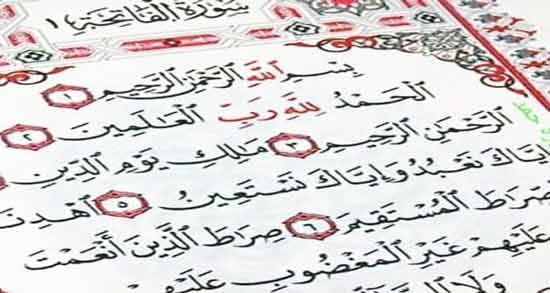 سُورَةُ الْفَاتِحَةِ ١
بِسْمِ ٱللَّهِ ٱلرَّحْمَٰنِ ٱلرَّحِيمِ ١
ٱلْحَمْدُ لِلَّهِ رَبِّ ٱلْعَٰلَمِينَ ٢
ٱلرَّحْمَٰنِ ٱلرَّحِيمِ ٣ مَٰلِكِ يَوْمِ ٱلدِّينِ
إِيَّاكَ نَعْبُدُ وَإِيَّاكَ نَسْتَعِينُ ٥ ٱهْدِنَ
صِرَٰطَ ٱلْمُسْتَقِيمَ ٦ صِرَٰطَ ٱلَّذِينَ أَنْعَمْتَ
عَلَيْهِمْ غَيْرِ ٱلْمَغْضُوبِ عَلَيْهِ
وَلَا